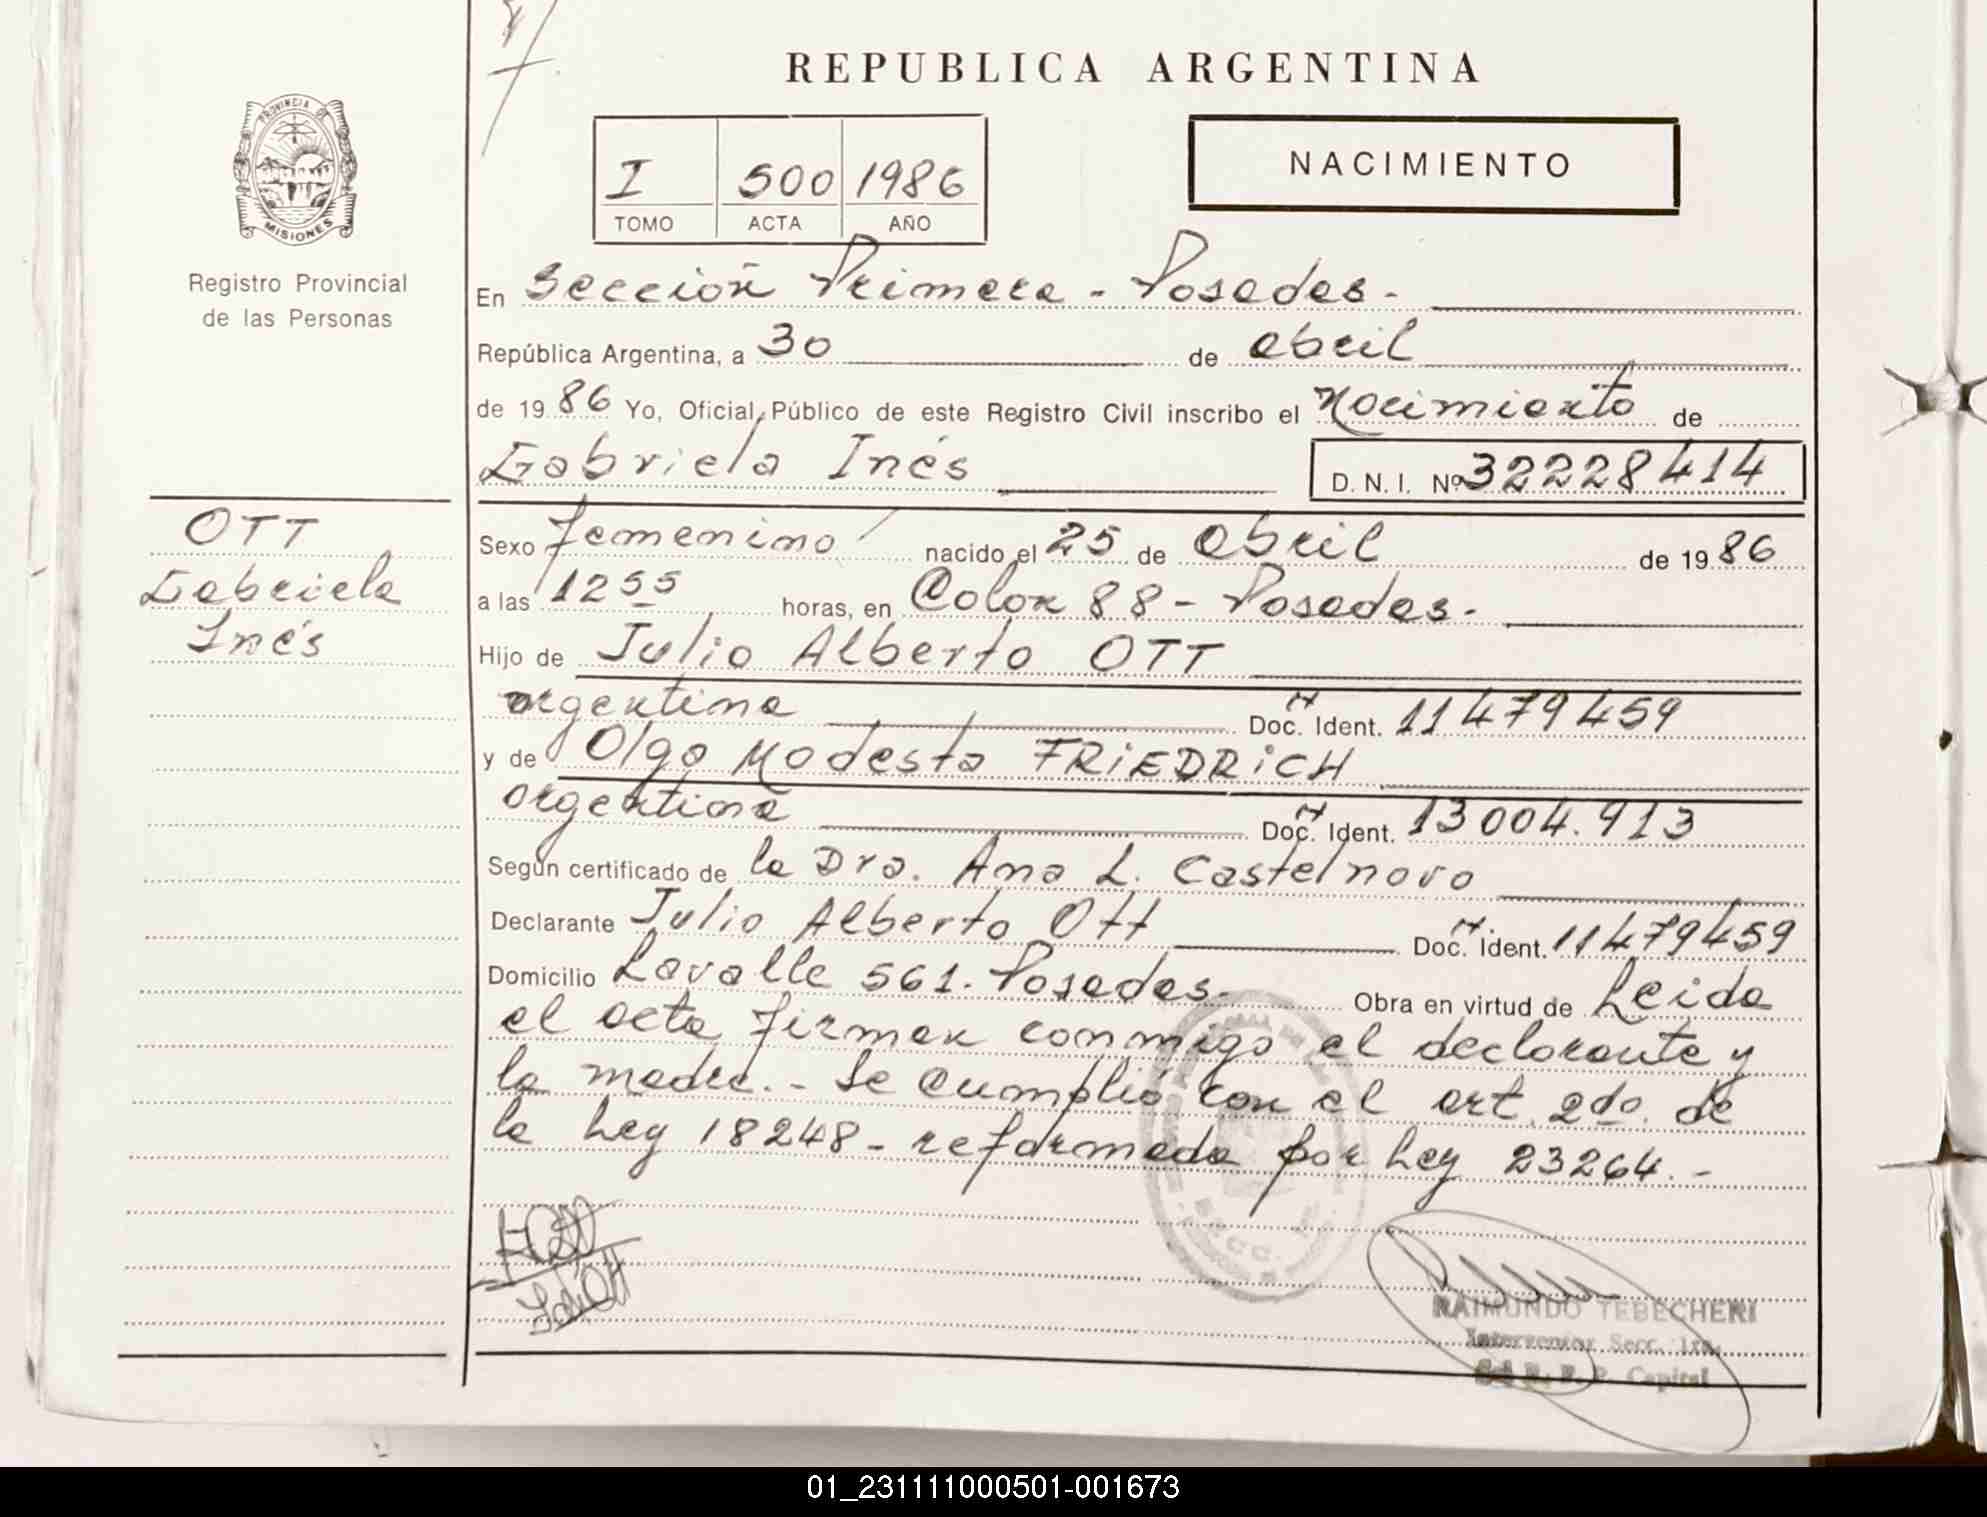 REPUBLICA ARGENTINA
PROVINCIA DE
MISIONES
Registro Provincial
de las Personas
I 500 1986
TOMO ACTA AÑO
NACIMIENTO
En Sección Primera - Posadas -
República Argentina, a 30 de abril
de 19 86 Yo, Oficial Público de este Registro Civil inscribo el Nacimiento de
Gabriela Inés D. N. I. Nº 32228414
OTT
Gabriela
Inés
Sexo femenino nacido el 25 de abril de 19 86
a las 12 55 horas, en Colon 88 - Posadas -
Hijo de Julio Alberto OTT
argentina Doc. Ident. 11479459
y de Olga Modesta FRiEDRiCH
argentina Doc. Ident. 13004.913
Según certificado de la Dra. Ana L. Castelnovo
Declarante Julio Alberto Ott Doc. Ident. 11479459
Domicilio Lavalle 561. Posadas - Obra en virtud de Leida
el acta firman conmigo el declarante y
la madre. - Se cumplió con el art. 2do. de
la Ley 18248 - reformada por Ley 23264. -
RAIMUNDO TEBECHERI
Interventor Secc. 1ra.
R. P. P. Capital
01_231111000501-001673